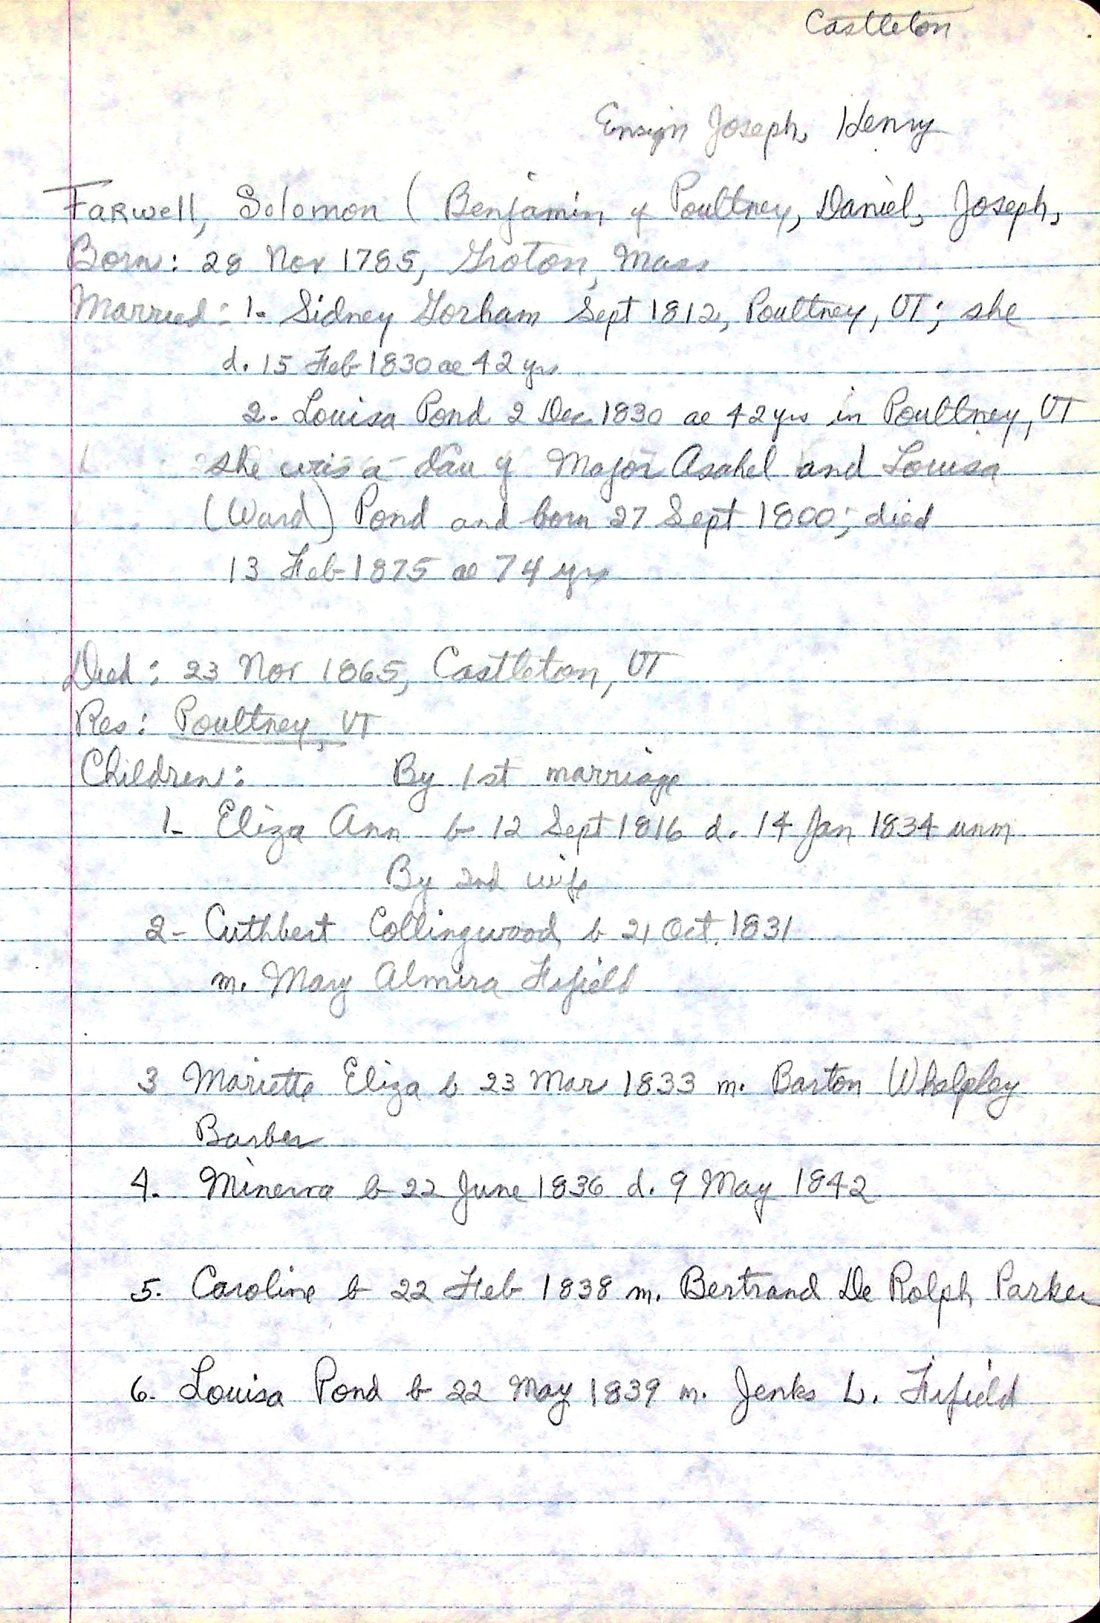 Castleton
Ensign Joseph, Henry
Farwell, Solomon (Benjamin of Poultney, Daniel, Joseph,
Born: 28 Nov 1785, Groton, Mass
Married: 1- Sidney Gorham Sept 1812, Poultney, VT; she
d. 15 Feb 1830 ae 42 yrs
2- Louisa Pond 2 Dec 1830 ae 42 yrs in Poultney, VT
she was a dau of Major Asahel and Louisa
(Ward) Pond and born 27 Sept 1800; died
13 Feb 1875 ae 74 yrs
Died: 23 Nov 1865, Castleton, VT
Res: Poultney, VT
Children: By 1st marriage
1- Eliza Ann b 12 Sept 1816 d. 14 Jan 1834 unm
By 2nd wife
2- Cuthbert Collingwood b 21 Oct. 1831
m. Mary Almira Fifield
3 Mariette Eliza b 23 Mar 1833 m. Barton Whalpley
Barber
4. Minerva b 22 June 1836 d. 9 May 1842
5. Caroline b 22 Feb 1838 m. Bertrand De Rolph Parker
6. Louisa Pond b 22 May 1839 m. Jenks L. Fifield